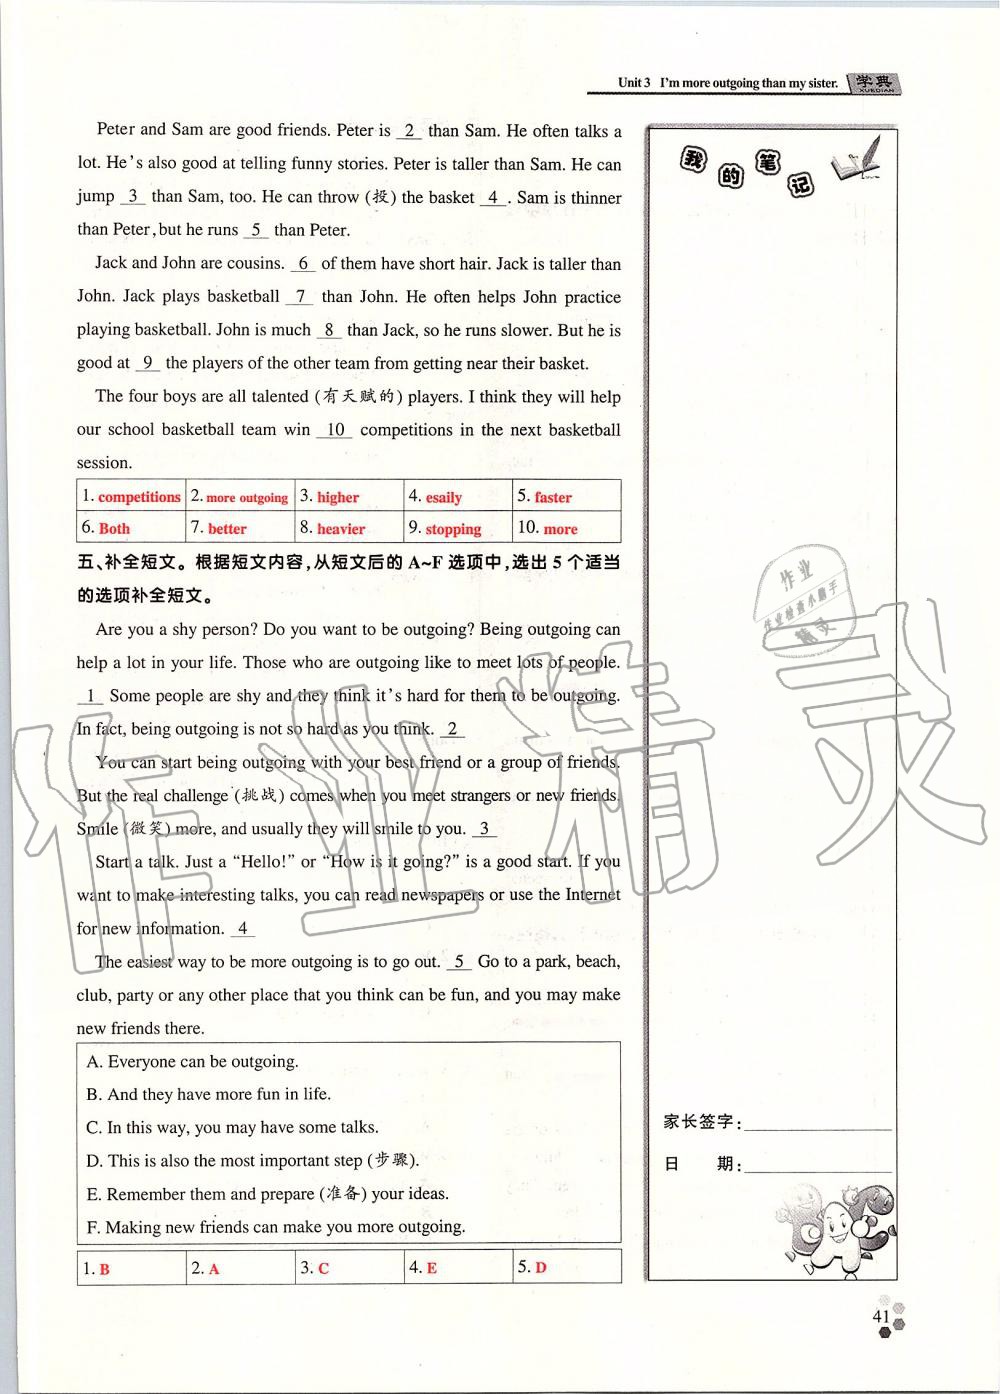 Unit 3 I'm more outgoing than my sister. 学典
XUEDIAN
Peter and Sam are good friends. Peter is 2 than Sam. He often talks a
lot. He's also good at telling funny stories. Peter is taller than Sam. He can
jump 3 than Sam, too. He can throw (投) the basket 4 . Sam is thinner
than Peter, but he runs 5 than Peter.
Jack and John are cousins. 6 of them have short hair. Jack is taller than
John. Jack plays basketball 7 than John. He often helps John practice
playing basketball. John is much 8 than Jack, so he runs slower. But he is
good at 9 the players of the other team from getting near their basket.
The four boys are all talented (有天赋的) players. I think they will help
our school basketball team win 10 competitions in the next basketball
session.
1. competitions 2. more outgoing 3. higher 4. esaily 5. faster
6. Both 7. better 8. heavier 9. stopping 10. more
五、补全短文。根据短文内容，从短文后的 A~F 选项中，选出 5 个适当
的选项补全短文。
Are you a shy person? Do you want to be outgoing? Being outgoing can
help a lot in your life. Those who are outgoing like to meet lots of people.
1 Some people are shy and they think it's hard for them to be outgoing.
In fact, being outgoing is not so hard as you think. 2
You can start being outgoing with your best friend or a group of friends.
But the real challenge (挑战) comes when you meet strangers or new friends.
Smile (微笑) more, and usually they will smile to you. 3
Start a talk. Just a "Hello!" or "How is it going?" is a good start. If you
want to make interesting talks, you can read newspapers or use the Internet
for new information. 4
The easiest way to be more outgoing is to go out. 5 Go to a park, beach,
club, party or any other place that you think can be fun, and you may make
new friends there.
A. Everyone can be outgoing.
B. And they have more fun in life.
C. In this way, you may have some talks.
D. This is also the most important step (步骤).
E. Remember them and prepare (准备) your ideas.
F. Making new friends can make you more outgoing.
1. B 2. A 3. C 4. E 5. D
我的笔记
家长签字:
日 期:
41
作业
作业检查小助手
精灵
作业精灵